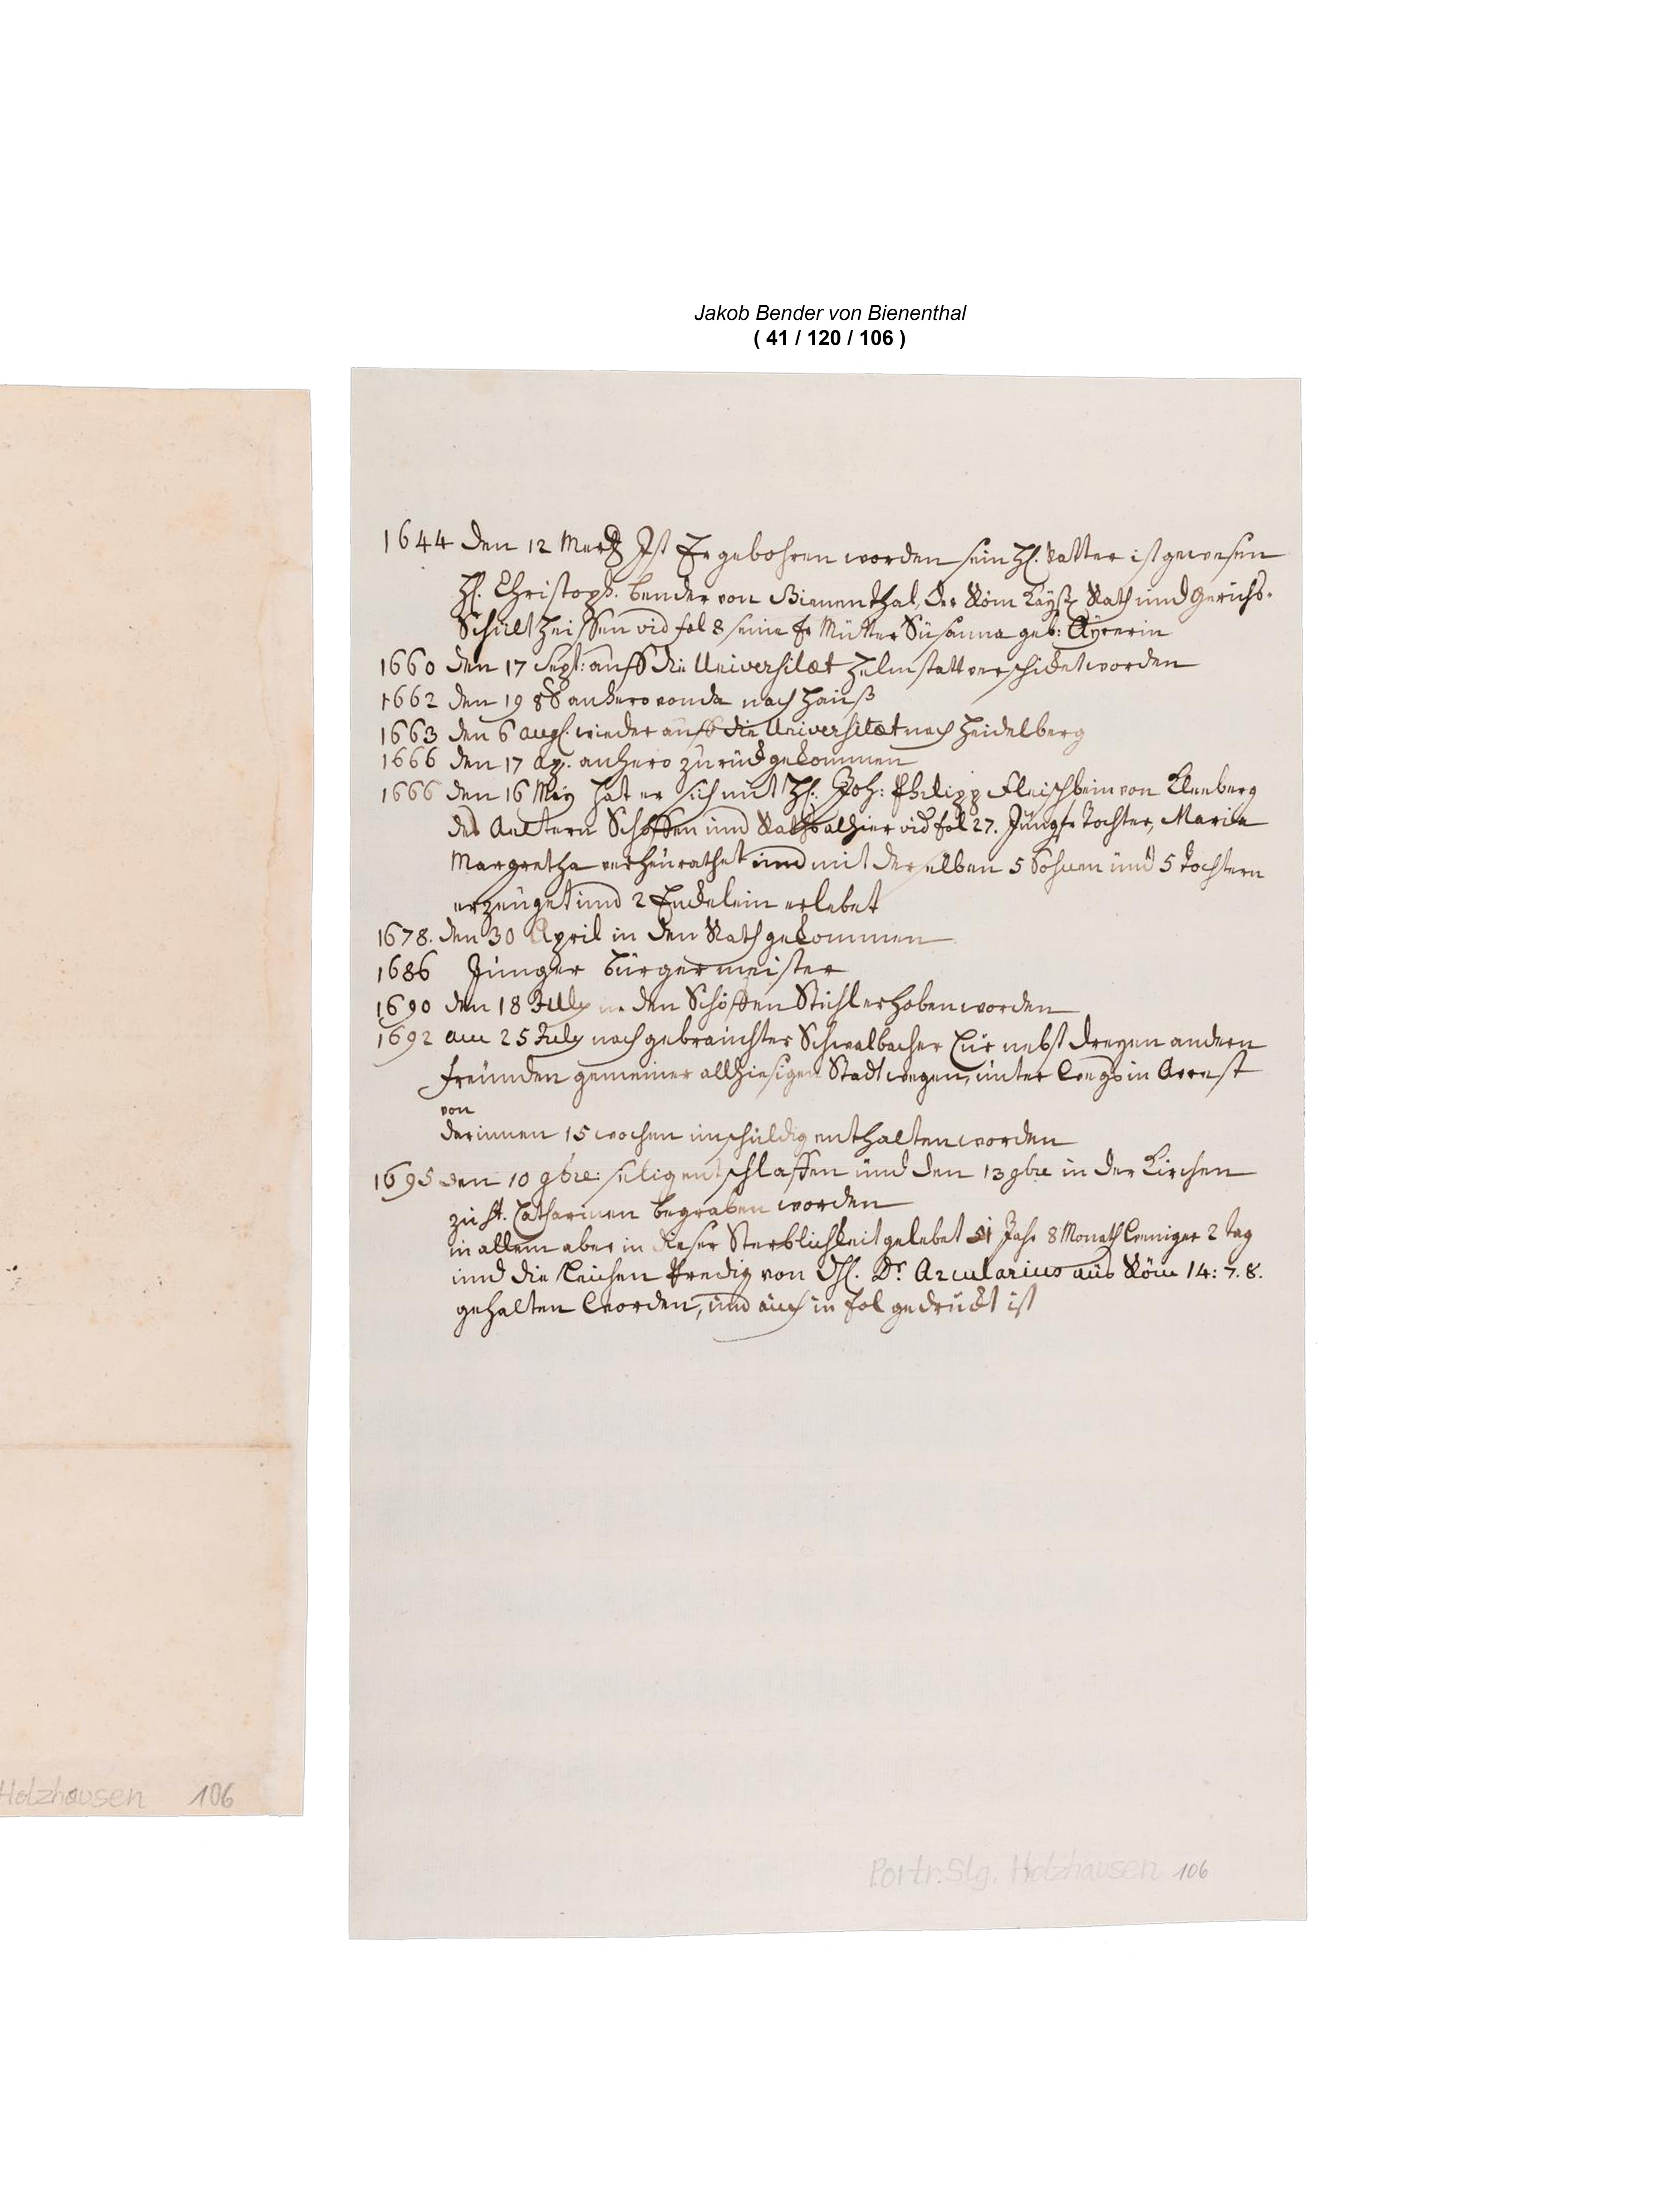 Jakob Bender von Bienenthal
( 41 / 120 / 106 )
1644 den 12 Mertz Ist Er gebohren worden sein H. Vatter ist gewesen
H. Christoph. Bender von Bienenthal, der Röm Kayß Rath und Gerichs-
Schultheissen vid fol 8 seine Fr Mutter Susanna geb: Ayrerin
1660 den 17 Sept: auff die Universitæt Helmstatt verschicket worden
1662 den 19 8b anhero von da nach Hauß
1663 den 6 aug. wieder auff die Universitæt nach Heidelberg
1666 den 17 Ap. anhero zurück gekommen
1666 den 16 May hat er sich mit H. Joh: Philipp Fleischbein von Kleeberg
des Aeltern Schöffen und Raths alhier vid fol 27. Jungfr Tochter, Maria
Margretha verheurathet und mit derselben 5 Söhnen und 5 Töchtern
erzeuget und 2 Enckelein erlebet
1678. den 30 April in den Rath gekommen
1686 Junger Burgermeister
1690 den 18 July in den Schöffen Stuhl erhoben worden
1692 am 25 July nach gebrauchter Schwalbacher Cur nebst dreyen andern
freunden gemeiner allhiesigen Stadt wegen, unter Wegs in Arrest
von
darinnen 15 wochen unschuldig enthalten worden
1695 den 10 9bre: selig entschlaffen und den 13 9bre in der Kirchen
zu St. Catharinen begraben worden
in allem aber in dieser Sterblichkeit gelebet 51 Jahr 8 Monath weniger 2 tag
und die Leichen Predig von H. Dr. Arcularius aus Röm 14: 7. 8.
gehalten worden, und auch in fol gedruckt ist
Holzhausen 106
Portr. Slg. Holzhausen 106